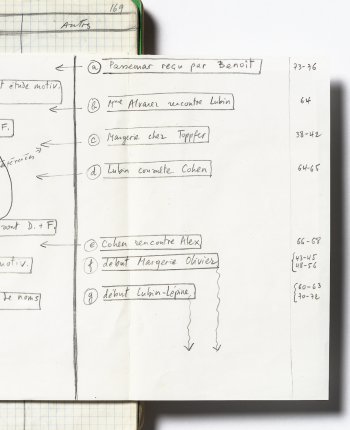 169
Autres
(a) Passemar reçu par Benoît 73-76
t étude motiv.
(b) Mme Alvarez rencontre Lubin 64
F.
(c) Margerie chez Toppfer 38-42
(d) Lubin consulte Cohen 64-65
vant D. + F.
(e) Cohen rencontre Alex 56-58
(f) début Margerie Olivier 43-45
48-56
motiv.
(g) début Lubin-Lépine 60-63
70-72
de noms